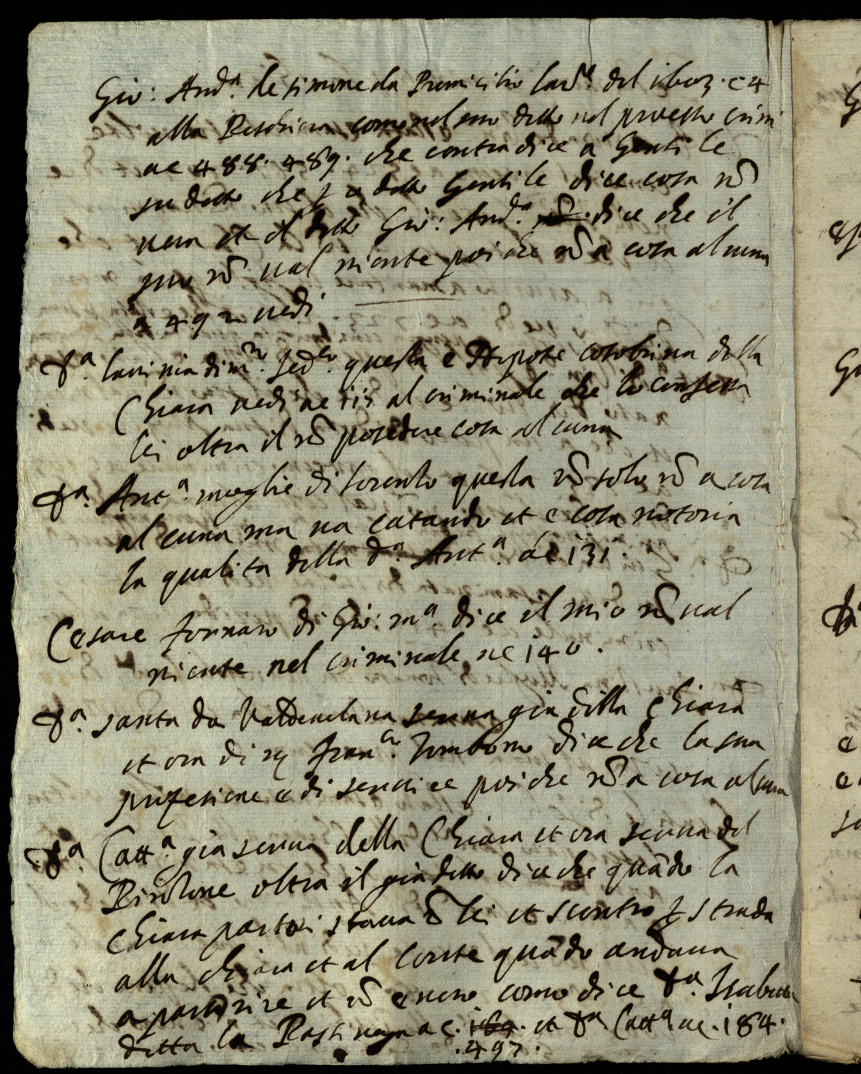 Gio: And.a testimone da Premicilio lad.o del 1603. e 4
alla come nel suo detto nel processo crimi
a c 488. 489. che contradice a Gentile
sudetto che detto Gentile dice cosa nõ
vera et il detto Gio: And.a dice che il
suo nõ val niente poi che nõ a cosa alcuna
a 492 vedi
D.a Lavinia di questa e Nepote cosobrina della
Chiara vedi a c 115 al criminale che lo confessa
lei oltra il nõ posedere cosa alcuna
D.a Ant.a moglie di Lorento questa nõ solo nõ a cosa
alcuna ma va catando et e cosa notoria
la qualita della D.a Ant.a a c 131.
Cesare fornaro di Gio: m.a dice il mio nõ val
niente nel criminale a c 140.
D.a santa da serva gia della Chiara
et ora di Fran.co dice che la sua
profesione e di servire poi che nõ a cosa alcuna
D.a Catt.a gia serva della Chiara et ora serva del
oltra il gia detto dice che quãdo la
Chiara partori stava cõ lei et scontro p strada
alla chiara et al Conte quãdo andava
a partorire et nõ e vero como dice D.a Isabella
detta la a c. 184. et D.a Catt.a a c. 184.
.497.